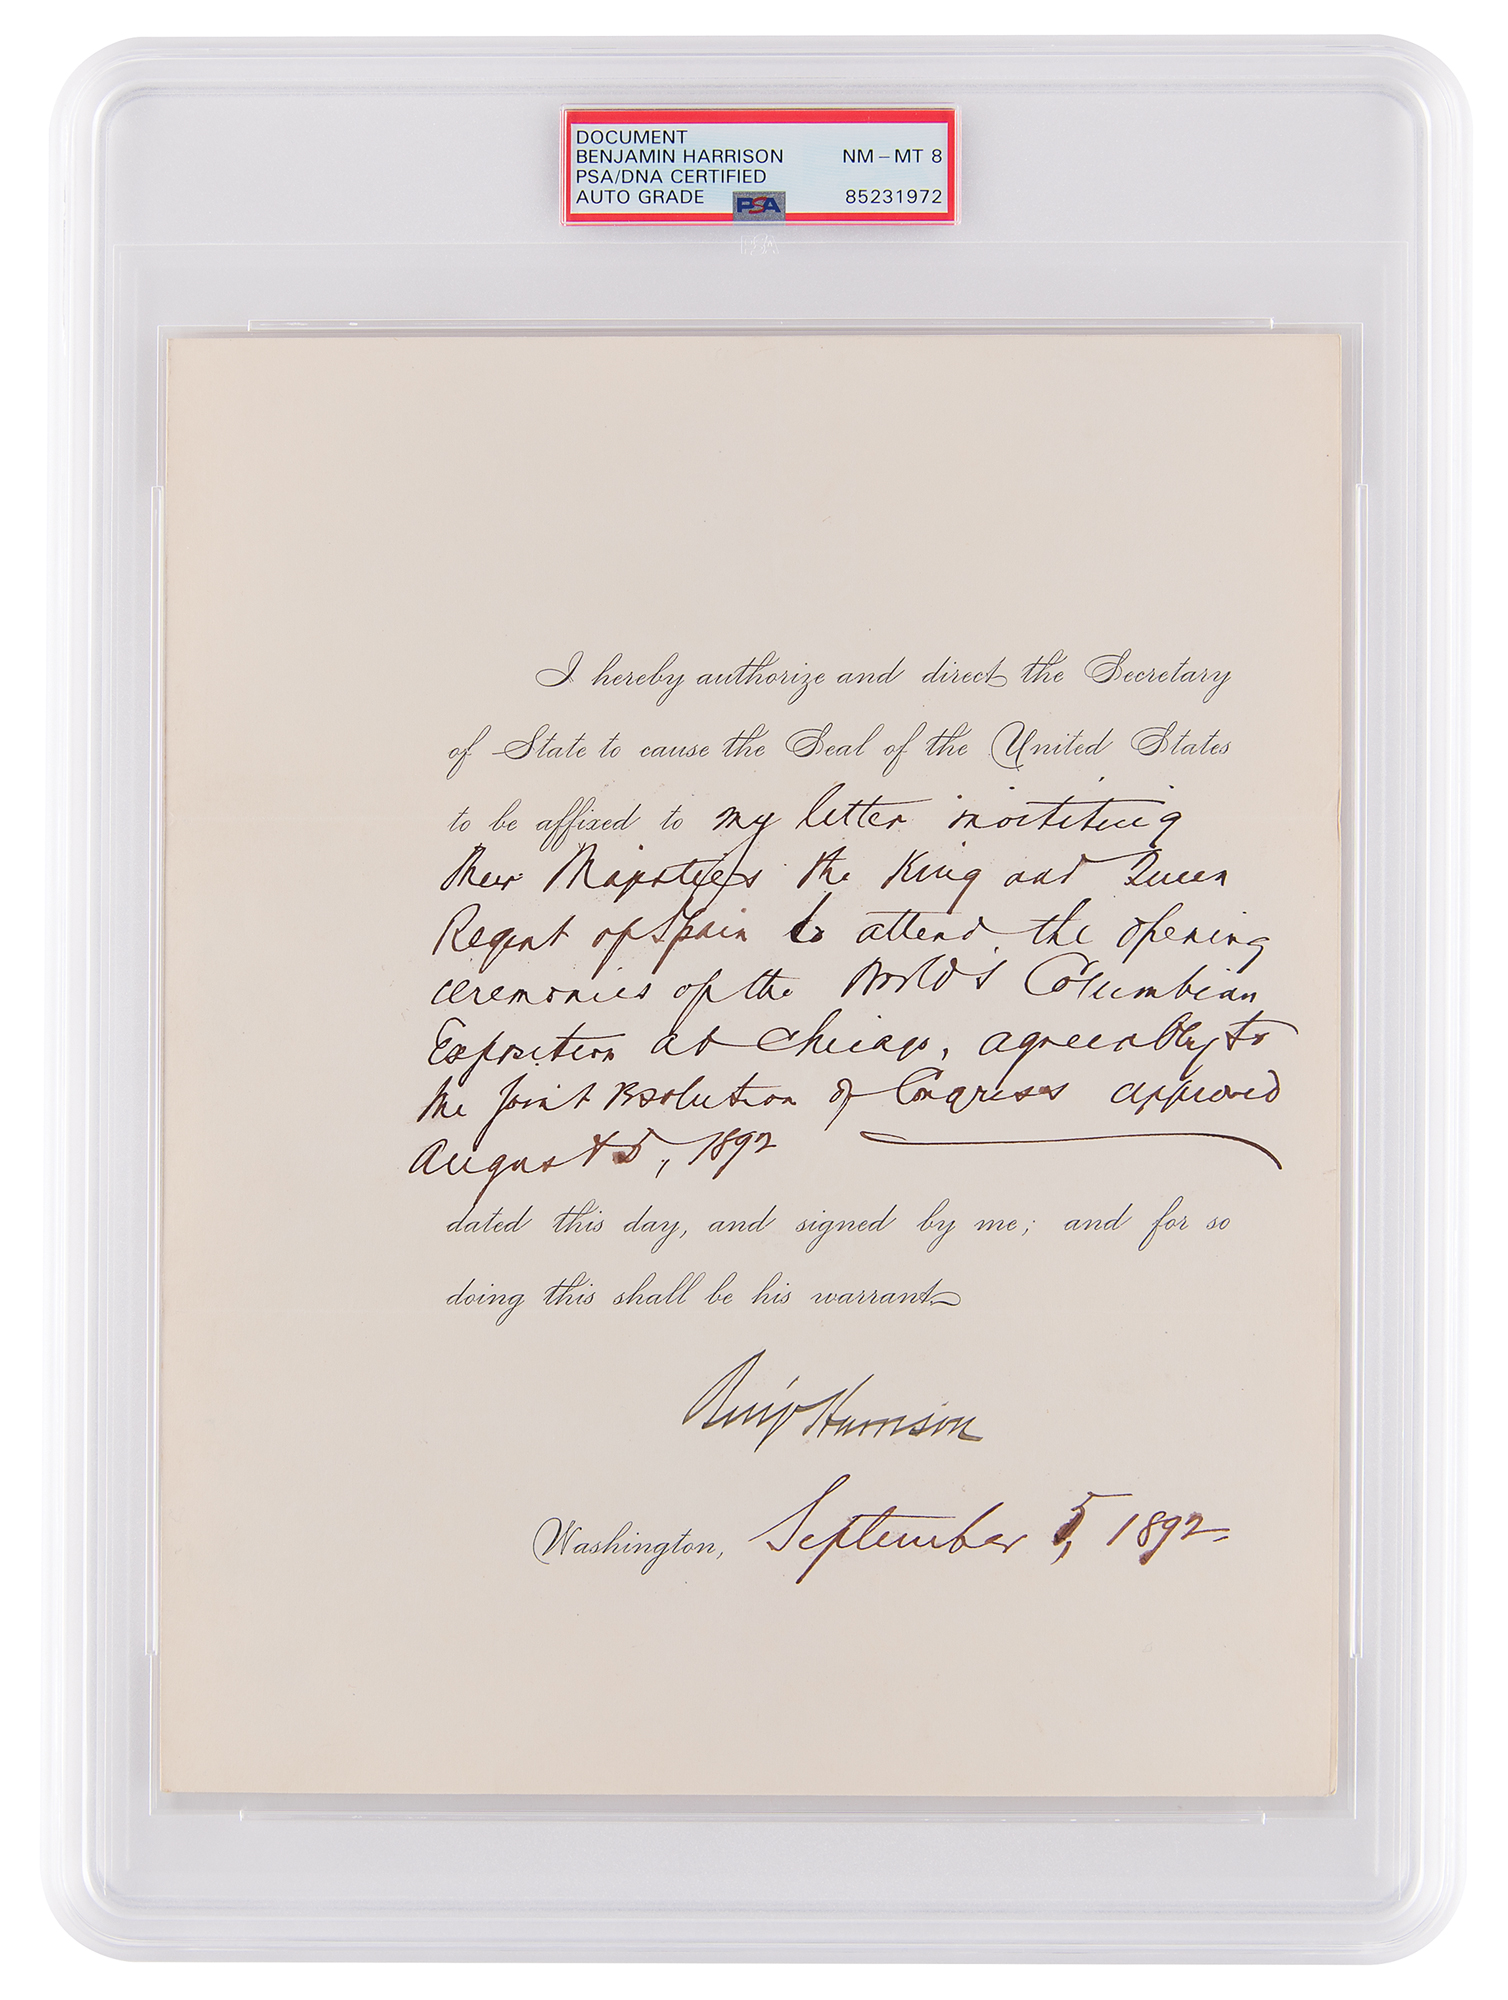 DOCUMENT
BENJAMIN HARRISON NM-MT 8
PSA/DNA CERTIFIED
AUTO GRADE PSA 85231972
I hereby authorize and direct the Secretary
of State to cause the Seal of the United States
to be affixed to my letter inviting
their Majesties the King and Queen
Regent of Spain to attend the opening
ceremonies of the World's Columbian
Exposition at Chicago, agreeably to
the Joint Resolution of Congress approved
August 5, 1892
dated this day, and signed by me; and for so
doing this shall be his warrant
Benj Harrison
Washington, September 5, 1892.